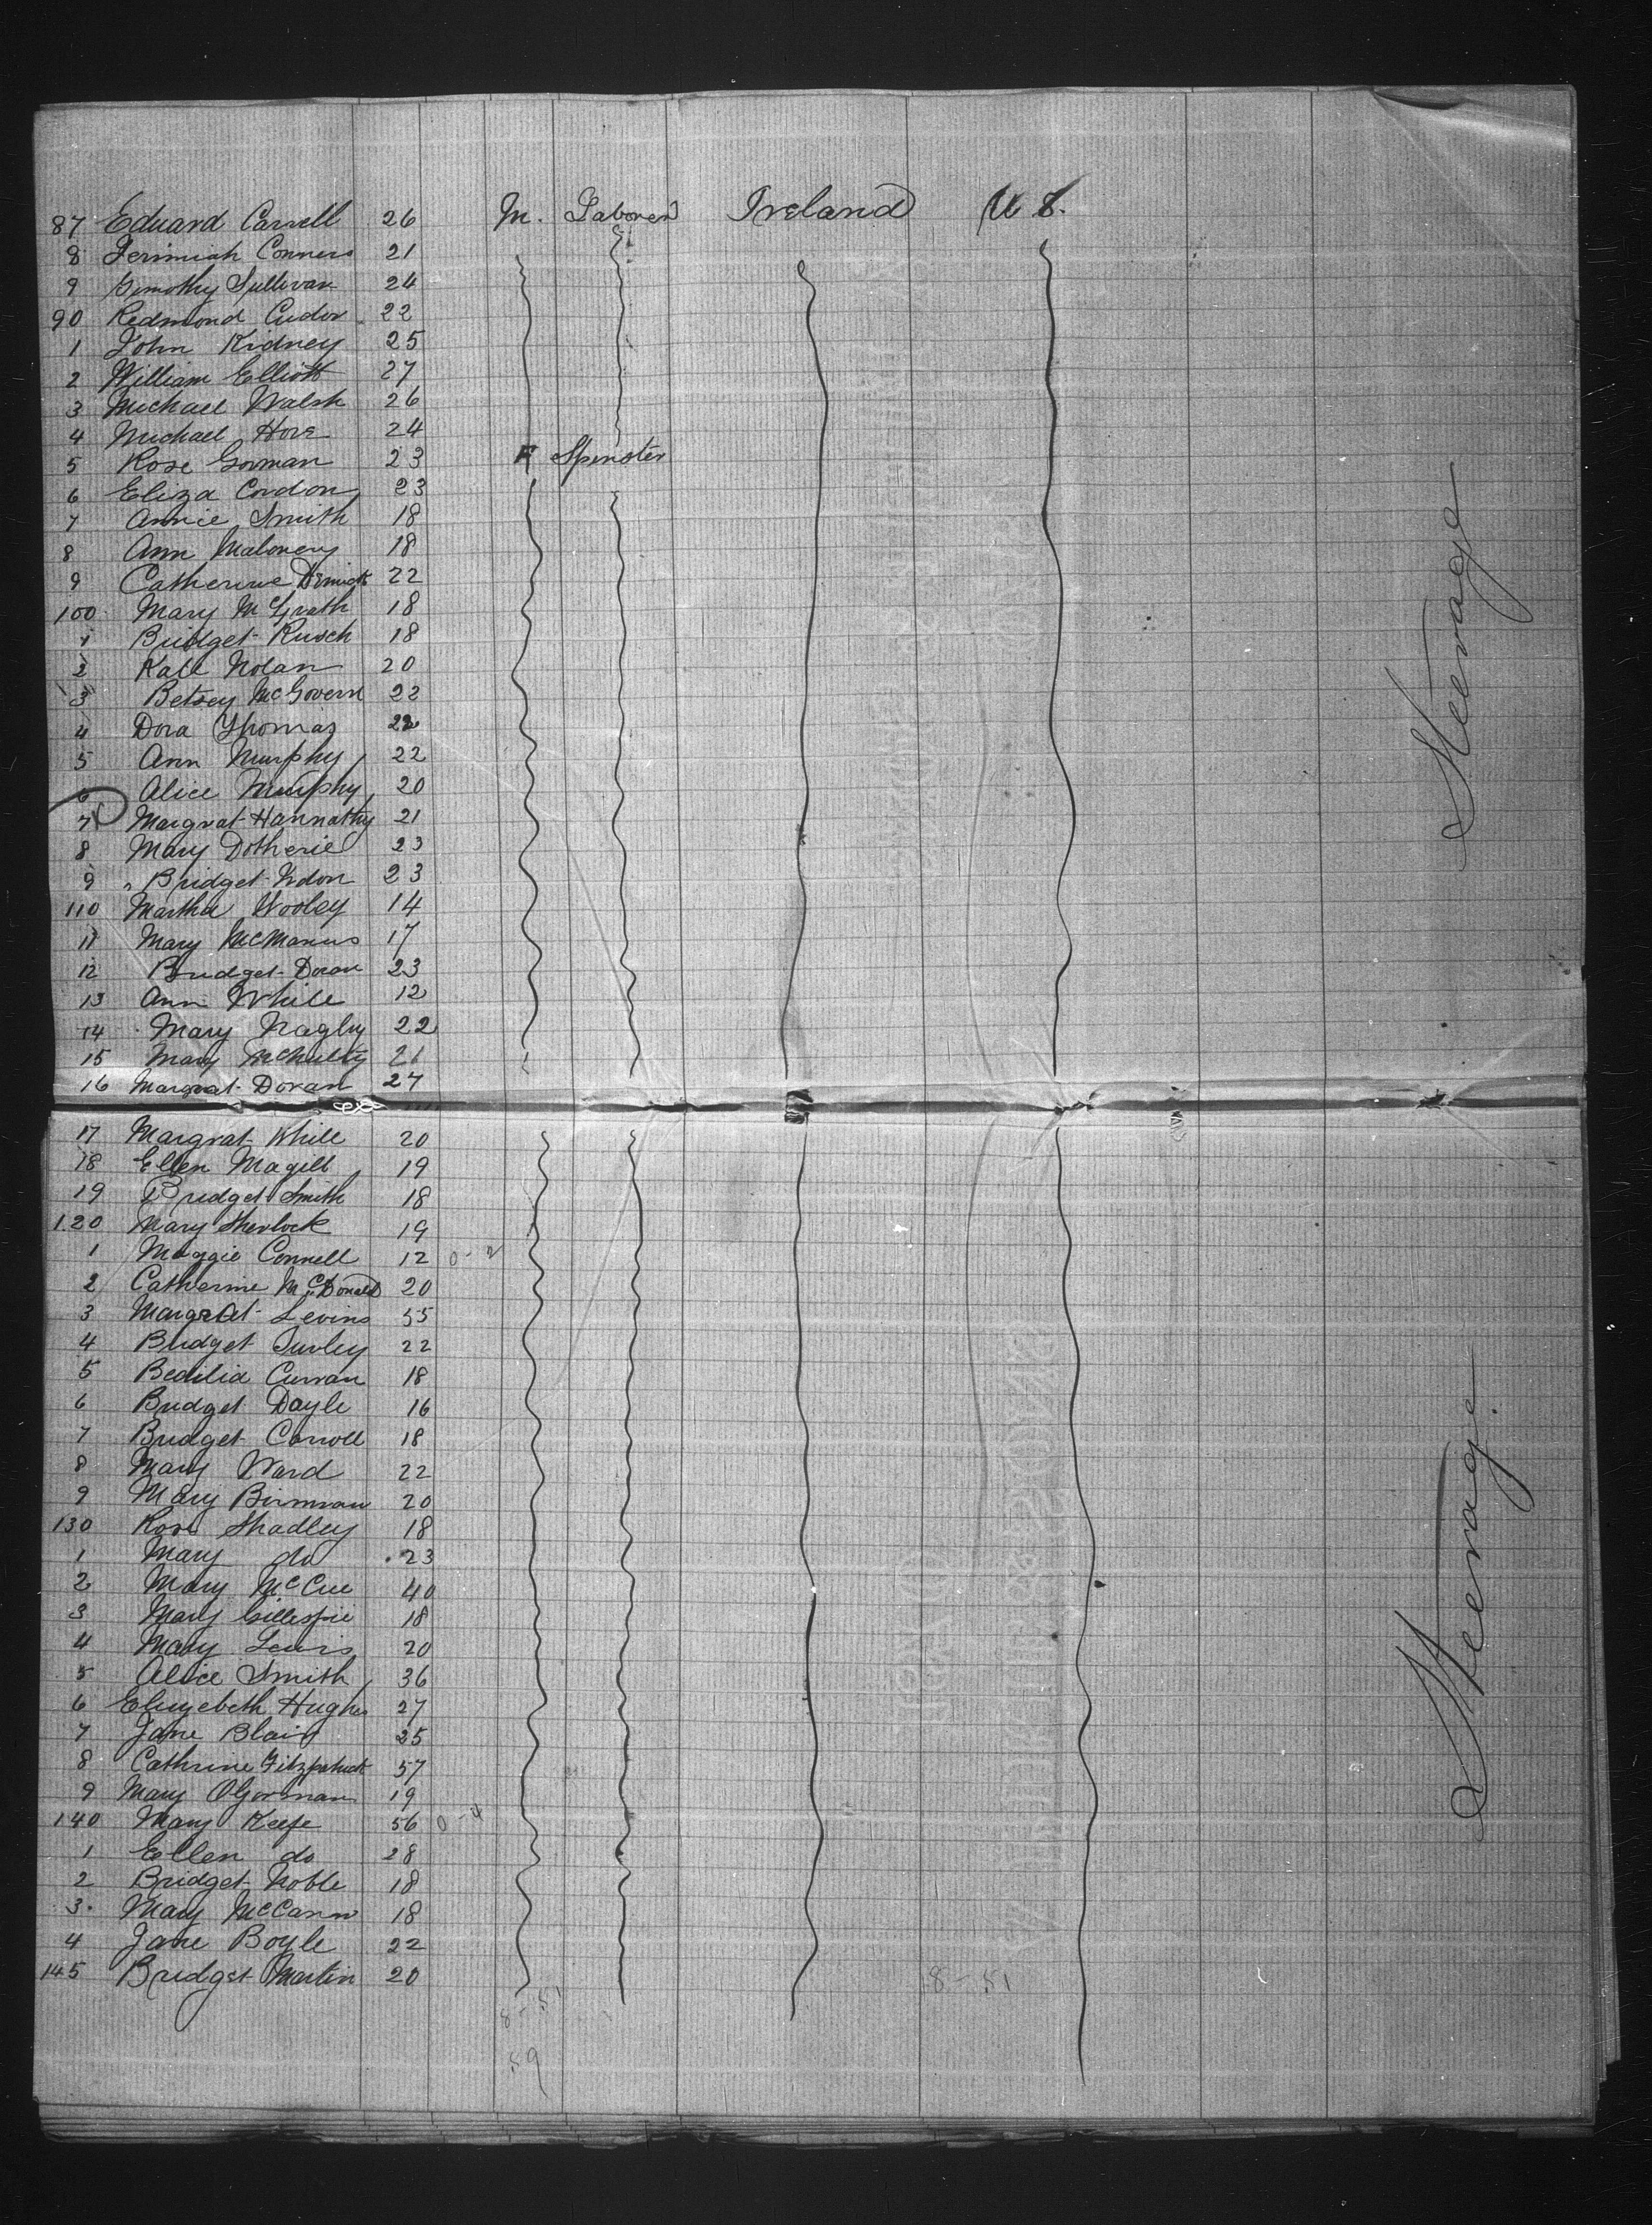 87 Eduard Carrell 26 M. Laborer Ireland U S.
8 Jerimiah Conners 21
9 Timothy Sullivan 24
90 Redmond Cudor 22
1 John Kidney 25
2 William Elliott 27
3 Michael Walsh 26
4 Michael Hore 24
5 Rose Gorman 23 F Spinster
6 Eliza Cordon 23
7 Annie Smith 18
8 Ann Maloney 18
9 Catherine 22
100 Mary McGrath 18
1 Bridget Rusch 18
2 Kate Nolan 20
3 Betsey McGovern 22
4 Dora Thomas 22
5 Ann Murphy 22
6 Alice Murphy 20
7 Margrat Hannathy 21
8 Mary Dotherie 23
9 Bridget 23
110 Martha Wooley 14
11 Mary McManus 17
12 Bridget Doran 23
13 Ann While 12
14 Mary Nagly 22
15 Mary McNulty 21
16 Margrat Doran 27
17 Margrat While 20
18 Ellen Magill 19
19 Bridget Smith 18
120 Mary Sherlock 19
1 Maggie Connell 12 0-2
2 Catherine McDonald 20
3 Margrat Levins 55
4 Bridget Turley 22
5 Bedilia Curran 18
6 Bridget Dayle 16
7 Bridget Carroll 18
8 Mary Ward 22
9 Mary Birmran 20
130 Rose Shadley 18
1 Mary do 23
2 Mary McCue 40
3 Mary Gillespie 18
4 Mary Lewis 20
5 Alice Smith 36
6 Elizebeth Hughes 27
7 Jane Blair 25
8 Cathrine Fitzpatrick 57
9 Mary OGorman 19
140 Mary Keefe 56 0-4
1 Ellen do 28
2 Bridget Noble 18
3. Mary McCann 18
4 Jane Boyle 22
145 Bridget Martin 20
8-51 8-51
59
Steerage
Steerage